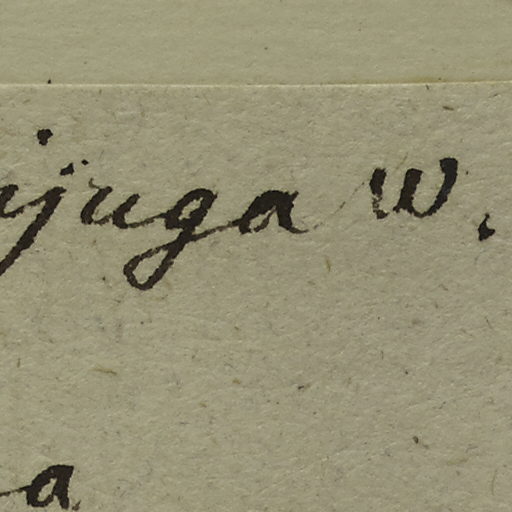 ijuga W.
a